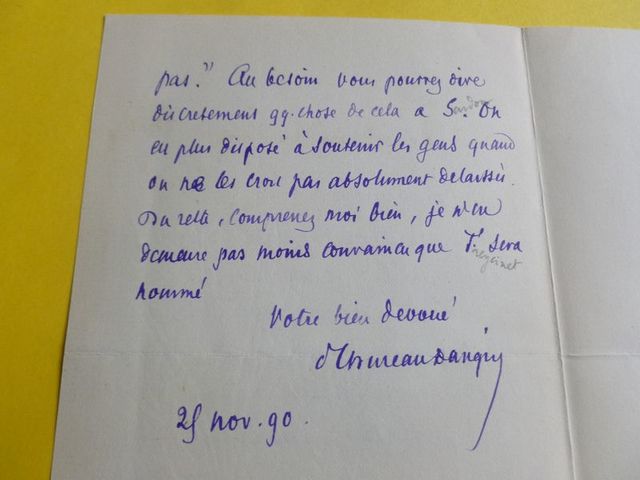 pas." Au besoin vous pourrez dire
discretement qq. chose de cela a S. Sardou On
est plus disposé à soutenir les gens quand
on ne les croit pas absolument delaissés.
Du reste, comprenez moi bien, je n'en
demeure pas moins convaincu que F. sera
Freycinet
nommé
Votre bien devoué
Thureau Dangin
25 nov. 90.